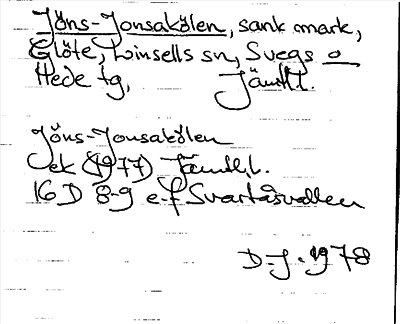 Jöns-Jonsakölen, sank mark,
Glöte, Linsells sn, Svegs o
Hede tg, Jämtl.l.
Jöns-Jonsakölen
ek (1977) Jämtl.l.
16D 8-9 e-f Svartåsvallen
D-J. 1978